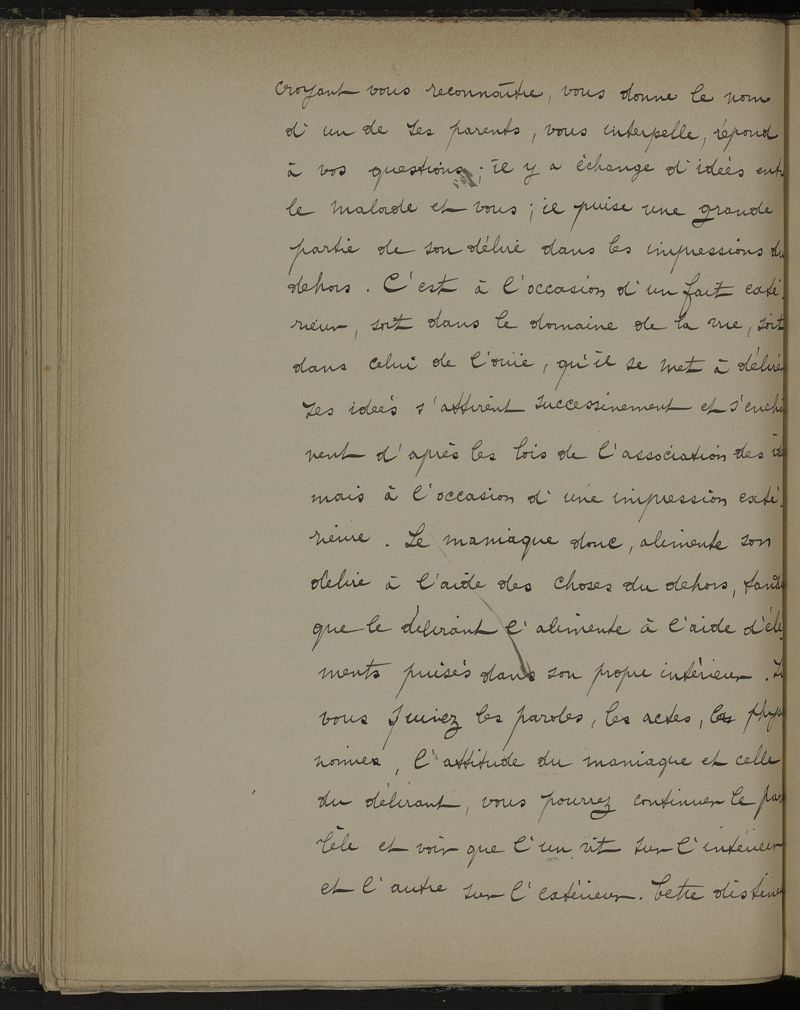 croyant vous reconnaître, vous donne le nom
d'un de ses parents, vous interpelle, répond
à vos questions ; il y a échange d'idées ent
le malade et vous ; il puise une grande
partie de son délire dans les impressions du
dehors. C'est à l'occasion d'un fait exté
rieur, soit dans le domaine de la vue, soit
dans celui de l'ouïe, qu'il se met à délire
ses ideés s'attirent successivement et s'enchaî
nent d'après les lois de l'association des id
mais à l'occasion d'une impression exté.
rieure. Le maniaque donc, alimente son
délire à l'aide des choses du dehors, tandi
que le délirant l'alimente à l'aide d'élé
ments puisés dans son propre intérieur. Si
vous suivez les paroles, les actes, les physi
nomies, l'attitude du maniaque et celle
du délirant, vous pourrez continuer le par
lèle et voir que l'un vit sur l'intérieur
et l'autre sur l'extérieur. Cette distinc